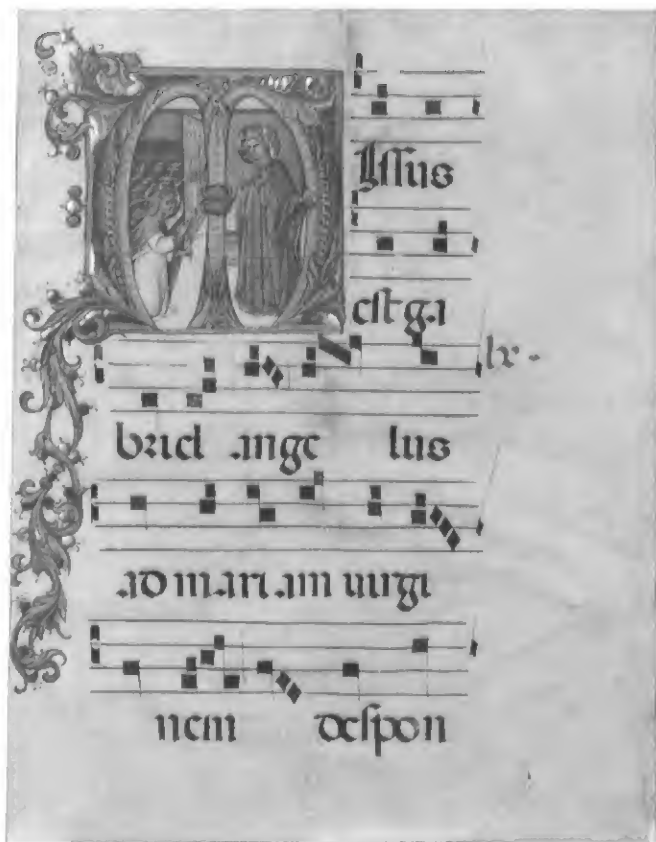 Missus
est ga
briel ange lus
ad mari am uirgi
nem despon